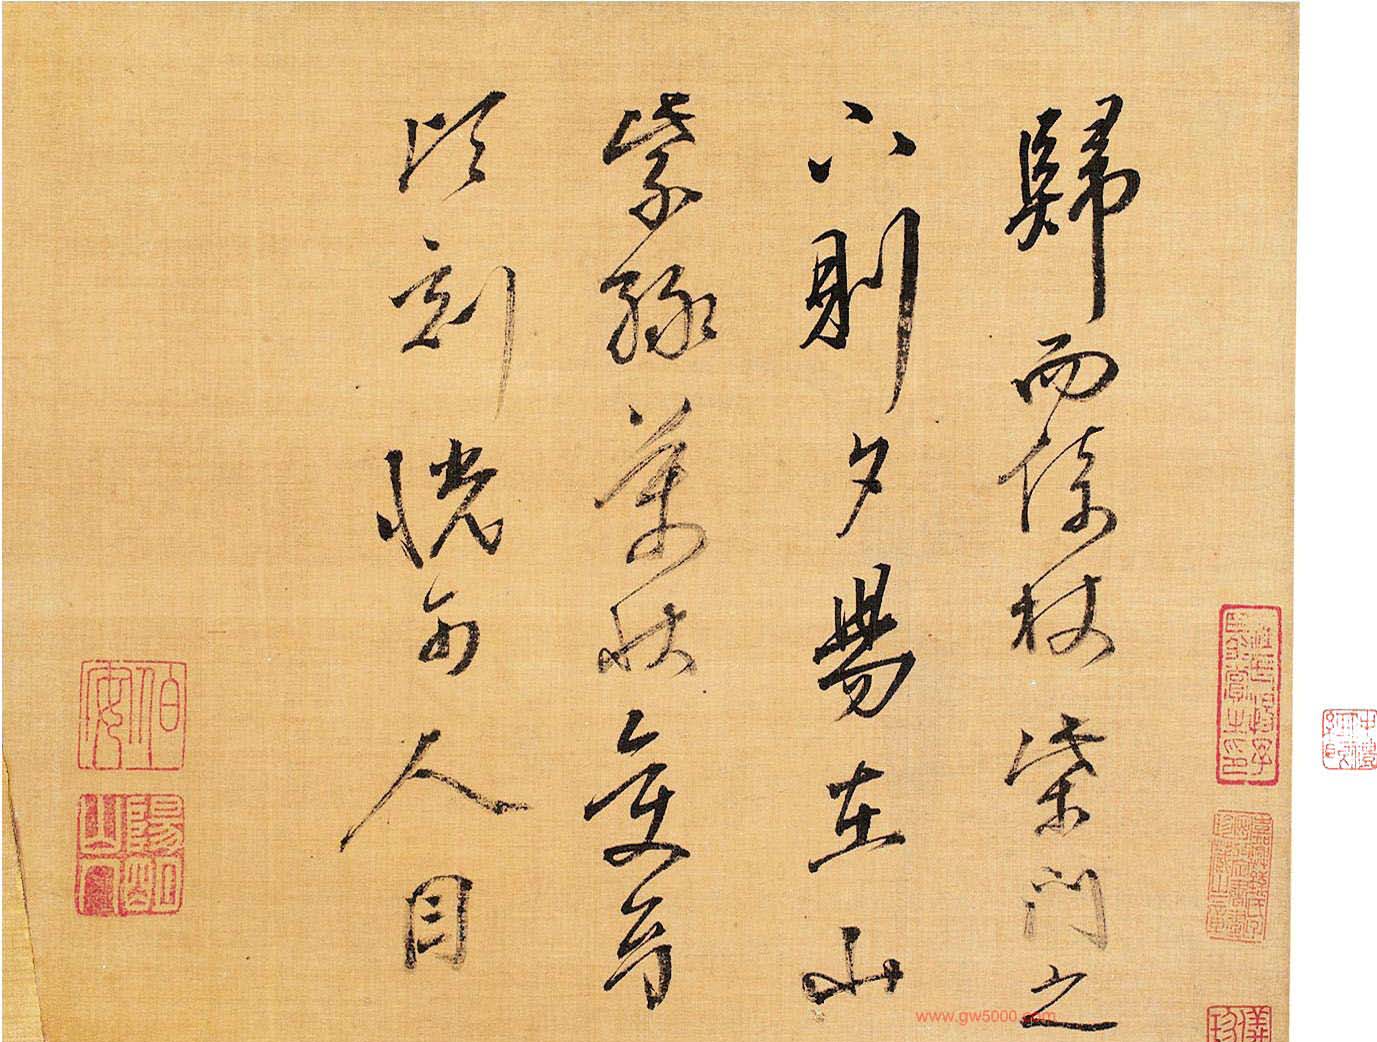 歸而倚杖柴門之
下則夕陽在山
紫綠萬狀變幻
頃刻恍可人目
伯安
www.gw5000.com